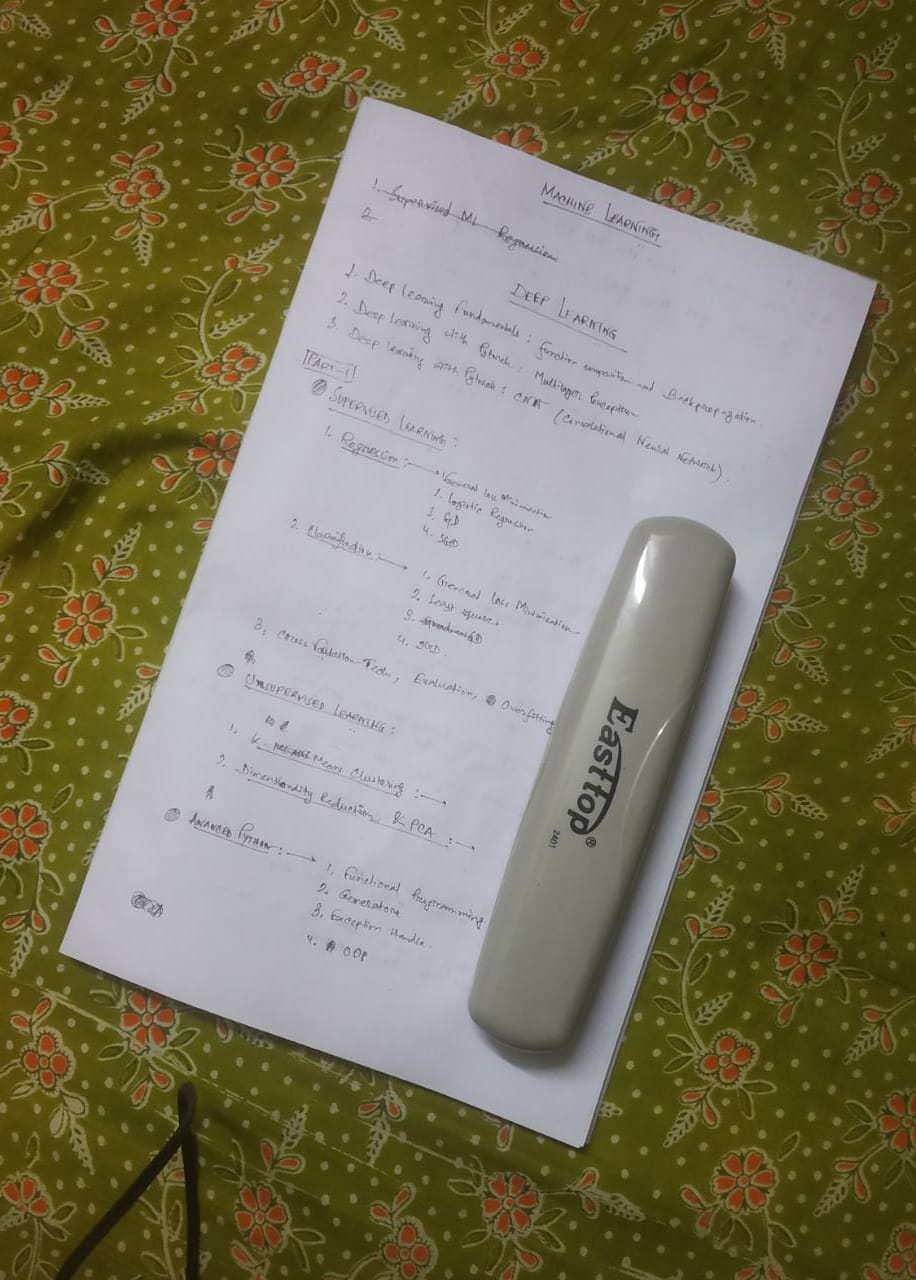 MACHINE LEARNING
1. Supervised ML Regression
2.
DEEP LEARNING
1. Deep learning Fundamentals : function composition and Backpropagation.
2. Deep learning with Pytorch : Multilayer Perceptron
3. Deep learning with Pytorch : CNN (Convolutional Neural Network)
PART-1
SUPERVISED LEARNING :
1. Regression : → General Loss Minimization
1. Logistic Regression
3. GD
4. SGD
2. Classification : →
1. General Loss Minimization
2. Least squares
3. GD
4. SGD.
3. Cross Validation , Evaluation, Overfitting
UNSUPERVISED LEARNING :
1. K- Means Clustering : →
2. Dimensionality Reduction & PCA : →
ADVANCED PYTHON : →
1. Functional Programming
2. Generators
3. Exception Handle.
4. OOP
Easttop®
2401